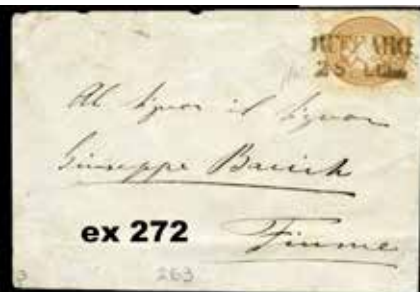 BUCCARI
25
Al Signor il Signor
Giuseppe Bacich
ex 272
Fiume
263